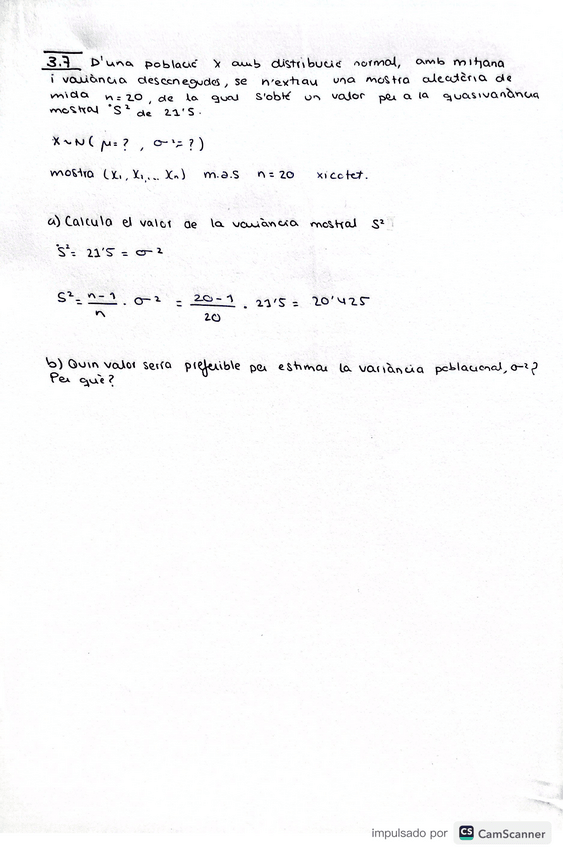 3.7 D'una població X amb distribució normal, amb mitjana
i variància desconegudes, se n'extrau una mostra aleatòria de
mida n=20, de la qual s'obté un valor per a la quasivariància
mostral *S² de 21'5.
X∼N( μ=? , σ²=?)
mostra (X₁, X₁,... Xₙ) m.a.s n=20 xicotet.
a) Calcula el valor de la variància mostral S²
*S²= 21'5 = σ²
S² = (n-1)/n · σ² = (20-1)/20 · 21'5 = 20'425
b) Quin valor seria preferible per estimar la variància poblacional, σ²?
Per què?
impulsado por CS CamScanner